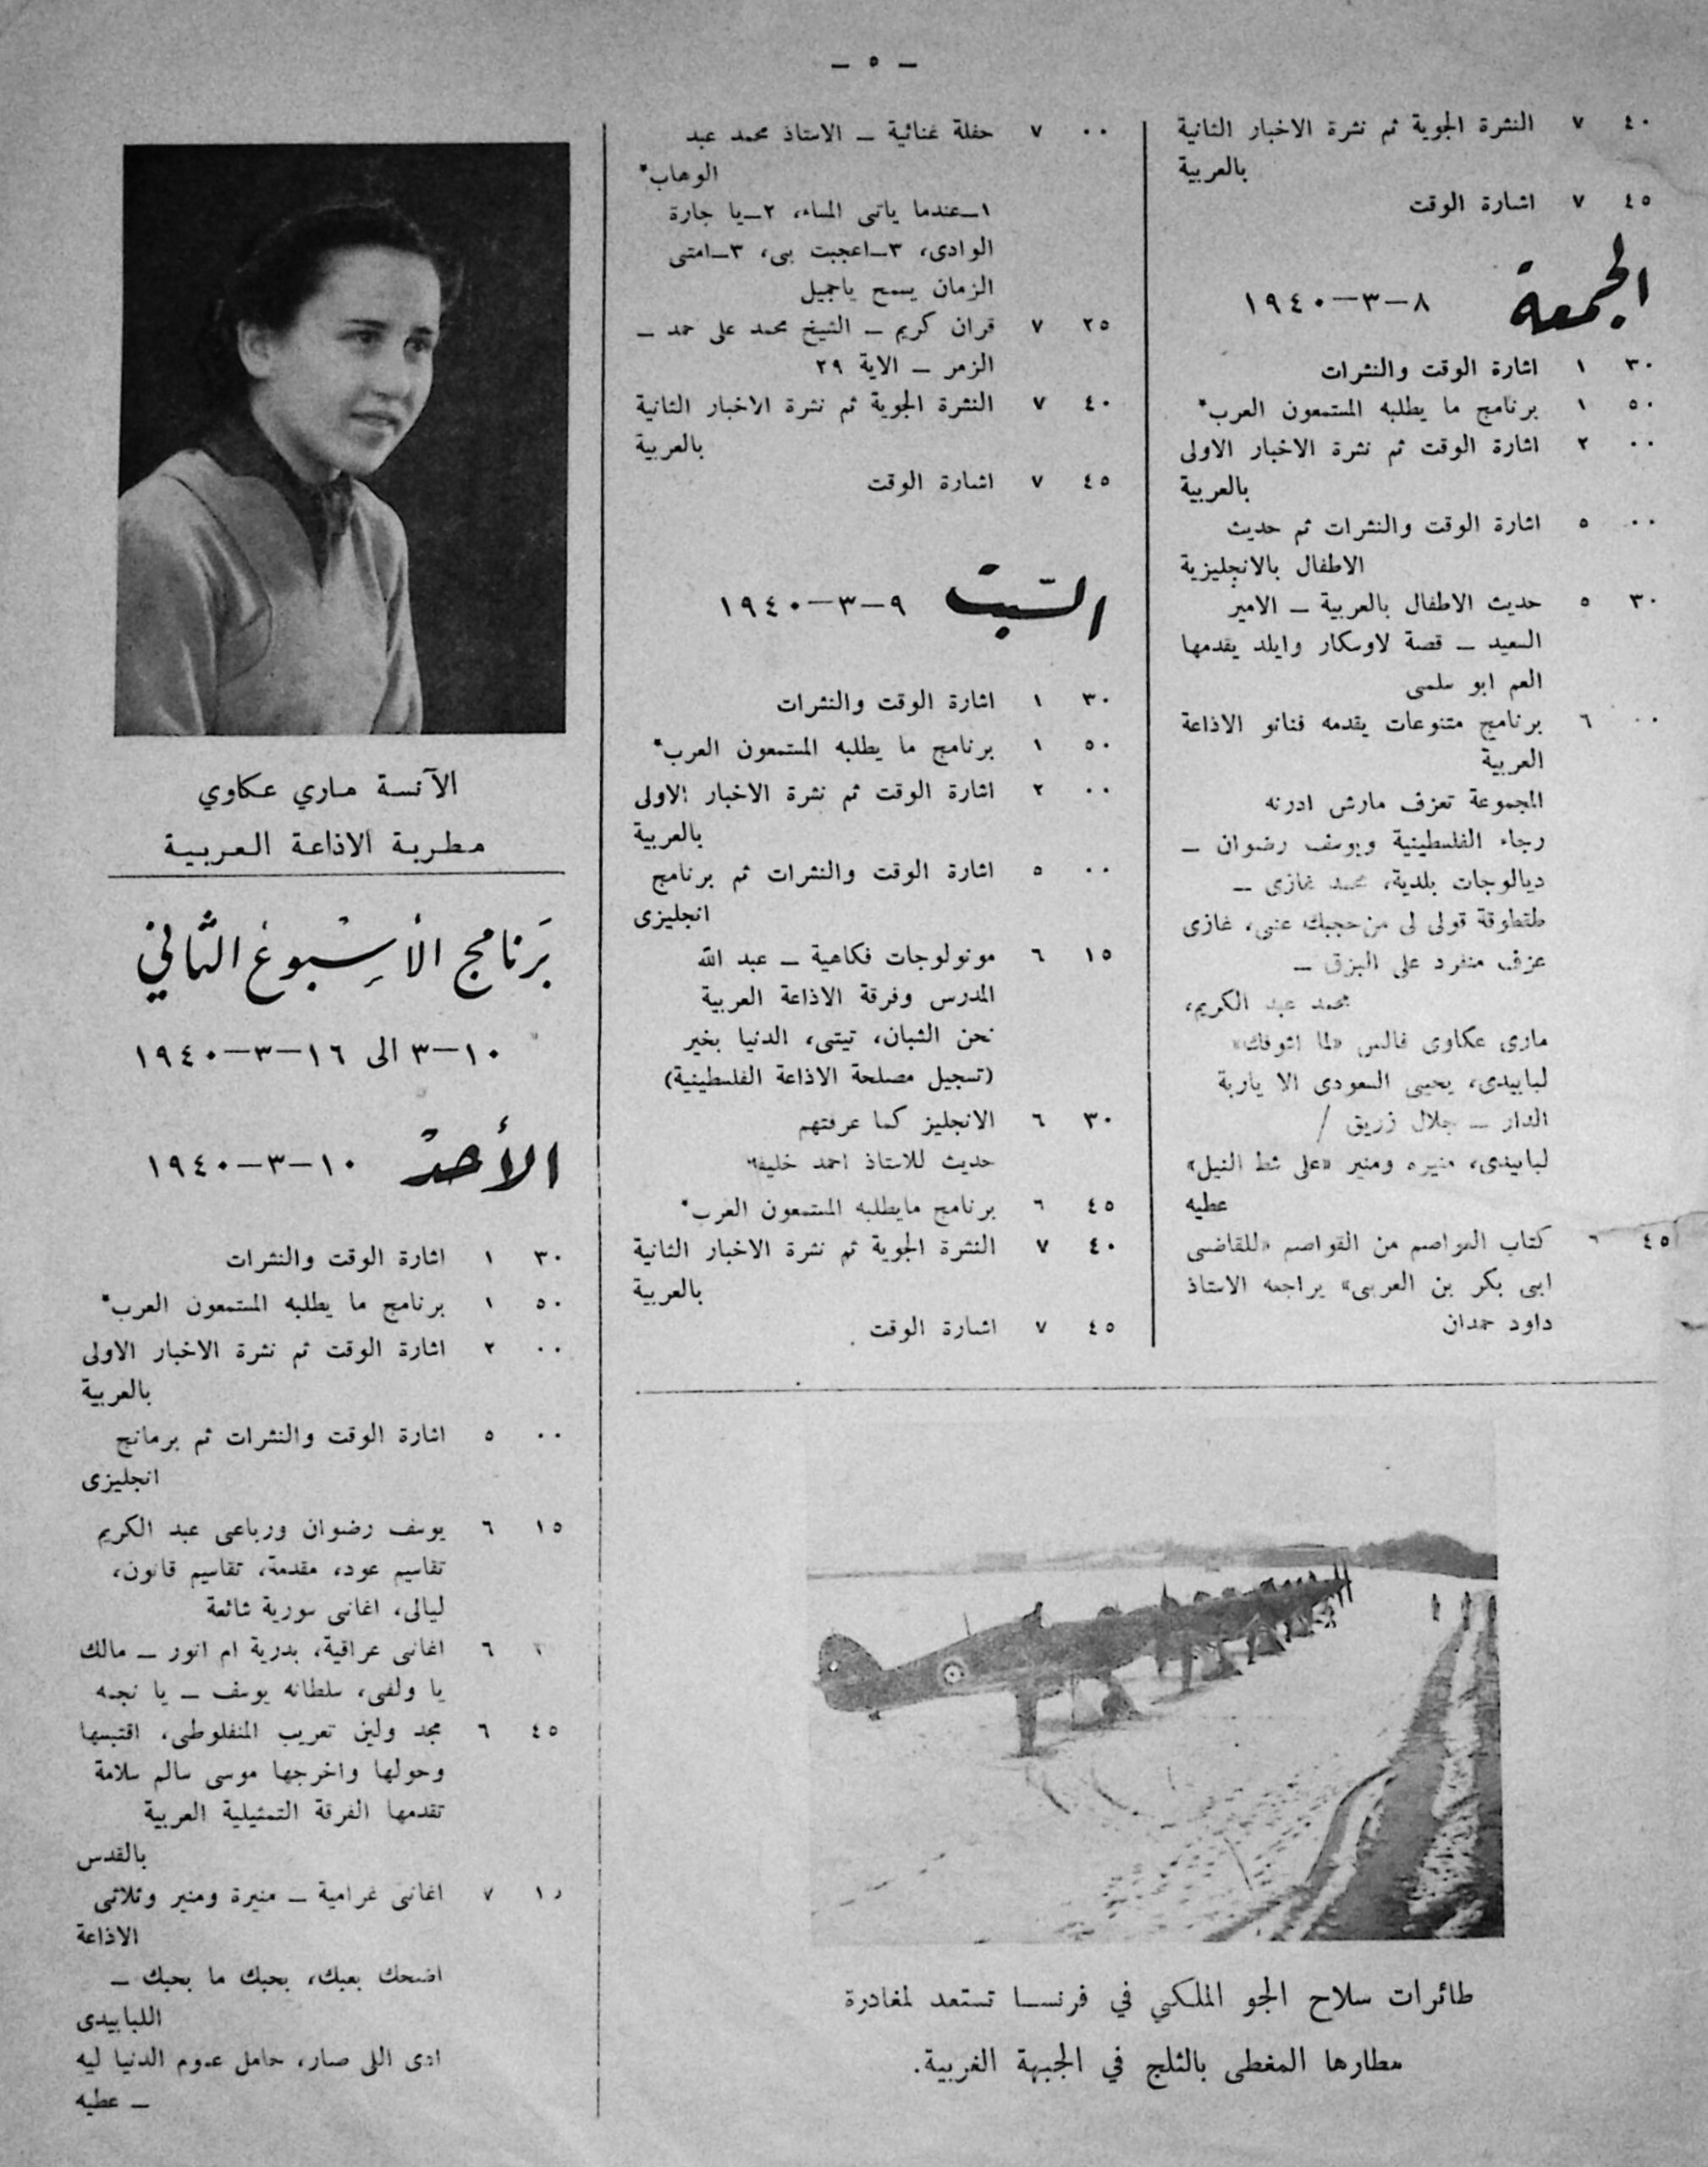 – ٥ –
٤٠ ٧ النشرة الجوية ثم نشرة الاخبار الثانية
بالعربية
٤٥ ٧ اشارة الوقت
الجمعة ٨–٣–١٩٤٠
٣٠ ١ اشارة الوقت والنشرات
٥٠ ١ برنامج ما يطلبه المستمعون العرب*
٠٠ ٢ اشارة الوقت ثم نشرة الاخبار الاولى
بالعربية
٠٠ ٥ اشارة الوقت والنشرات ثم حديث
الاطفال بالانجليزية
٣٠ ٥ حديث الاطفال بالعربية – الامير
السعيد – قصة لاوسكار وايلد يقدمها
العم ابو سلمى
٠٠ ٦ برنامج متنوعات يقدمه فنانو الاذاعة
العربية
المجموعة تعزف مارش ادرنه
رجاء الفلسطينية ويوسف رضوان –
ديالوجات بلدية، محمد غازى –
طقطوقة قولى لى من حجبك عنى، غازى
عزف منفرد على البزق –
محمد عبد الكريم،
مارى عكاوى فالس «لما اشوفك»
لبابيدى، يحيى السعودى الا ياربة
الدار – جلال زريق /
لبابيدى، منيره ومنير «على شط النيل»
عطيه
٤٥ ٦ كتاب العواصم من القواصم «للقاضى
ابى بكر بن العربى» يراجعه الاستاذ
داود حمدان
٠٠ ٧ حفلة غنائية – الاستاذ محمد عبد
الوهاب*
١–عندما ياتى المساء، ٢–يا جارة
الوادى، ٣–اعجبت بى، ٣–امتى
الزمان يسمح ياجميل
٢٥ ٧ قران كريم – الشيخ محمد على حمد –
الزمر – الاية ٢٩
٤٠ ٧ النشرة الجوية ثم نشرة الاخبار الثانية
بالعربية
٤٥ ٧ اشارة الوقت
السّبت ٩–٣–١٩٤٠
٣٠ ١ اشارة الوقت والنشرات
٥٠ ١ برنامج ما يطلبه المستمعون العرب*
٠٠ ٢ اشارة الوقت ثم نشرة الاخبار الاولى
بالعربية
٠٠ ٥ اشارة الوقت والنشرات ثم برنامج
انجليزى
١٥ ٦ مونولوجات فكاهية – عبد الله
المدرس وفرقة الاذاعة العربية
نحن الشبان، تيتى، الدنيا بخير
(تسجيل مصلحة الاذاعة الفلسطينية)
٣٠ ٦ الانجليز كما عرفتهم
حديث للاستاذ احمد خليفه
٤٥ ٦ برنامج مايطلبه المستمعون العرب*
٤٠ ٧ النشرة الجوية ثم نشرة الاخبار الثانية
بالعربية
٤٥ ٧ اشارة الوقت
طائرات سلاح الجو الملكي في فرنسا تستعد لمغادرة
مطارها المغطى بالثلج في الجبهة الغربية.
الآنسة ماري عكاوي
مطربة الاذاعة العربية
بَرنامج الأسْبوع الثّاني
١٠–٣ الى ١٦–٣–١٩٤٠
الأحدْ ١٠–٣–١٩٤٠
٣٠ ١ اشارة الوقت والنشرات
٥٠ ١ برنامج ما يطلبه المستمعون العرب*
٠٠ ٢ اشارة الوقت ثم نشرة الاخبار الاولى
بالعربية
٠٠ ٥ اشارة الوقت والنشرات ثم برمانج
انجليزى
١٥ ٦ يوسف رضوان ورباعى عبد الكريم
تقاسيم عود، مقدمة، تقاسيم قانون،
ليالى، اغانى سورية شائعة
٦ اغانى عراقية، بدرية ام انور – مالك
يا ولفى، سلطانه يوسف – يا نجمه
٤٥ ٦ مجد ولين تعريب المنفلوطى، اقتبسها
وحولها واخرجها موسى سالم سلامة
تقدمها الفرقة التمثيلية العربية
بالقدس
١٥ ٧ اغانى غرامية – منيرة ومنير وثلاثى
الاذاعة
اضحك بعبك، بحبك ما بحبك –
اللبابيدى
ادى اللى صار، حامل هموم الدنيا ليه
– عطيه